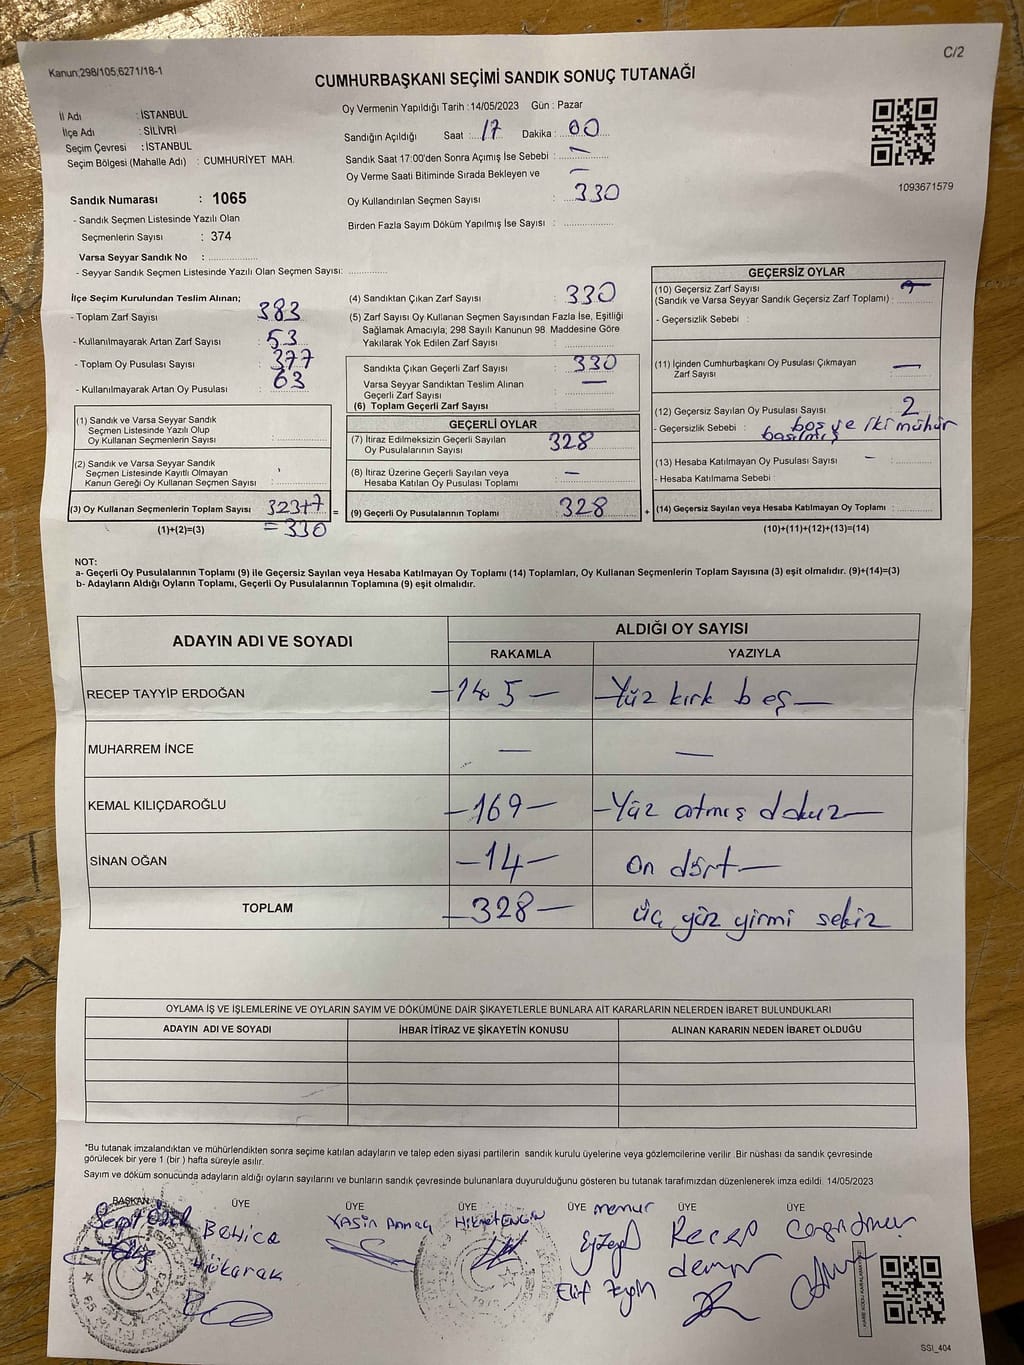 C/2
Kanun;298/105;6271/18-1
CUMHURBAŞKANI SEÇİMİ SANDIK SONUÇ TUTANAĞI
İl Adı : İSTANBUL
İlçe Adı : SİLİVRİ
Seçim Çevresi : İSTANBUL
Seçim Bölgesi (Mahalle Adı) : CUMHURİYET MAH.
Sandık Numarası : 1065
- Sandık Seçmen Listesinde Yazılı Olan
Seçmenlerin Sayısı : 374
Varsa Seyyar Sandık No :
- Seyyar Sandık Seçmen Listesinde Yazılı Olan Seçmen Sayısı:
Oy Vermenin Yapıldığı Tarih :14/05/2023 Gün : Pazar
Sandığın Açıldığı Saat : 17 Dakika : 00
Sandık Saat 17:00'den Sonra Açımış İse Sebebi : —
Oy Verme Saati Bitiminde Sırada Bekleyen ve —
Oy Kullandırılan Seçmen Sayısı : 330
Birden Fazla Sayım Döküm Yapılmış İse Sayısı :
1093671579
İlçe Seçim Kurulundan Teslim Alınan;
- Toplam Zarf Sayısı : 383
- Kullanılmayarak Artan Zarf Sayısı : 53
- Toplam Oy Pusulası Sayısı : 377
- Kullanılmayarak Artan Oy Pusulası : 63
(1) Sandık ve Varsa Seyyar Sandık
Seçmen Listesinde Yazılı Olup
Oy Kullanan Seçmenlerin Sayısı :
(2) Sandık ve Varsa Seyyar Sandık
Seçmen Listesinde Kayıtlı Olmayan
Kanun Gereği Oy Kullanan Seçmen Sayısı :
(3) Oy Kullanan Seçmenlerin Toplam Sayısı 323+7 =
= 330
(1)+(2)=(3)
(4) Sandıktan Çıkan Zarf Sayısı : 330
(5) Zarf Sayısı Oy Kullanan Seçmen Sayısından Fazla İse, Eşitliği
Sağlamak Amacıyla, 298 Sayılı Kanunun 98. Maddesine Göre
Yakılarak Yok Edilen Zarf Sayısı :
Sandıkta Çıkan Geçerli Zarf Sayısı : 330
Varsa Seyyar Sandıktan Teslim Alınan —
Geçerli Zarf Sayısı :
(6) Toplam Geçerli Zarf Sayısı :
GEÇERLİ OYLAR
(7) İtiraz Edilmeksizin Geçerli Sayılan 328
Oy Pusulalarının Sayısı :
(8) İtiraz Üzerine Geçerli Sayılan veya —
Hesaba Katılan Oy Pusulası Toplamı :
(9) Geçerli Oy Pusulalarının Toplamı : 328 +
GEÇERSİZ OYLAR
(10) Geçersiz Zarf Sayısı
(Sandık ve Varsa Seyyar Sandık Geçersiz Zarf Toplamı) :
- Geçersizlik Sebebi :
(11) İçinden Cumhurbaşkanı Oy Pusulası Çıkmayan —
Zarf Sayısı :
(12) Geçersiz Sayılan Oy Pusulası Sayısı : 2
- Geçersizlik Sebebi : boş ve iki mühür
basılmış
(13) Hesaba Katılmayan Oy Pusulası Sayısı – :
- Hesaba Katılmama Sebebi :
(14) Geçersiz Sayılan veya Hesaba Katılmayan Oy Toplamı :
(10)+(11)+(12)+(13)=(14)
NOT:
a- Geçerli Oy Pusulalarının Toplamı (9) ile Geçersiz Sayılan veya Hesaba Katılmayan Oy Toplamı (14) Toplamları, Oy Kullanan Seçmenlerin Toplam Sayısına (3) eşit olmalıdır. (9)+(14)=(3)
b- Adayların Aldığı Oyların Toplamı, Geçerli Oy Pusulalarının Toplamına (9) eşit olmalıdır.
ADAYIN ADI VE SOYADI ALDIĞI OY SAYISI
RAKAMLA YAZIYLA
RECEP TAYYİP ERDOĞAN –145– –Yüz kırk beş–
MUHARREM İNCE — —
KEMAL KILIÇDAROĞLU –169– –Yüz atmış dokuz–
SİNAN OĞAN –14– on dört–
TOPLAM –328– üç yüz yirmi sekiz
OYLAMA İŞ VE İŞLEMLERİNE VE OYLARIN SAYIM VE DÖKÜMÜNE DAİR ŞİKAYETLERLE BUNLARA AİT KARARLARIN NELERDEN İBARET BULUNDUKLARI
ADAYIN ADI VE SOYADI İHBAR İTİRAZ VE ŞİKAYETİN KONUSU ALINAN KARARIN NEDEN İBARET OLDUĞU
*Bu tutanak imzalandıktan ve mühürlendikten sonra seçime katılan adayların ve talep eden siyasi partilerin sandık kurulu üyelerine veya gözlemcilerine verilir .Bir nüshası da sandık çevresinde
görülecek bir yere 1 (bir ) hafta süreyle asılır.
Sayım ve döküm sonucunda adayların aldığı oyların sayılarını ve bunların sandık çevresinde bulunanlara duyurulduğunu gösteren bu tutanak tarafımızdan düzenlenerek imza edildi. 14/05/2023
BAŞKAN ÜYE ÜYE ÜYE ÜYE memur ÜYE ÜYE
Behice
Yasin
Hikmet ENGİN
Elif Zeyn
Recep
demir
SSI_404